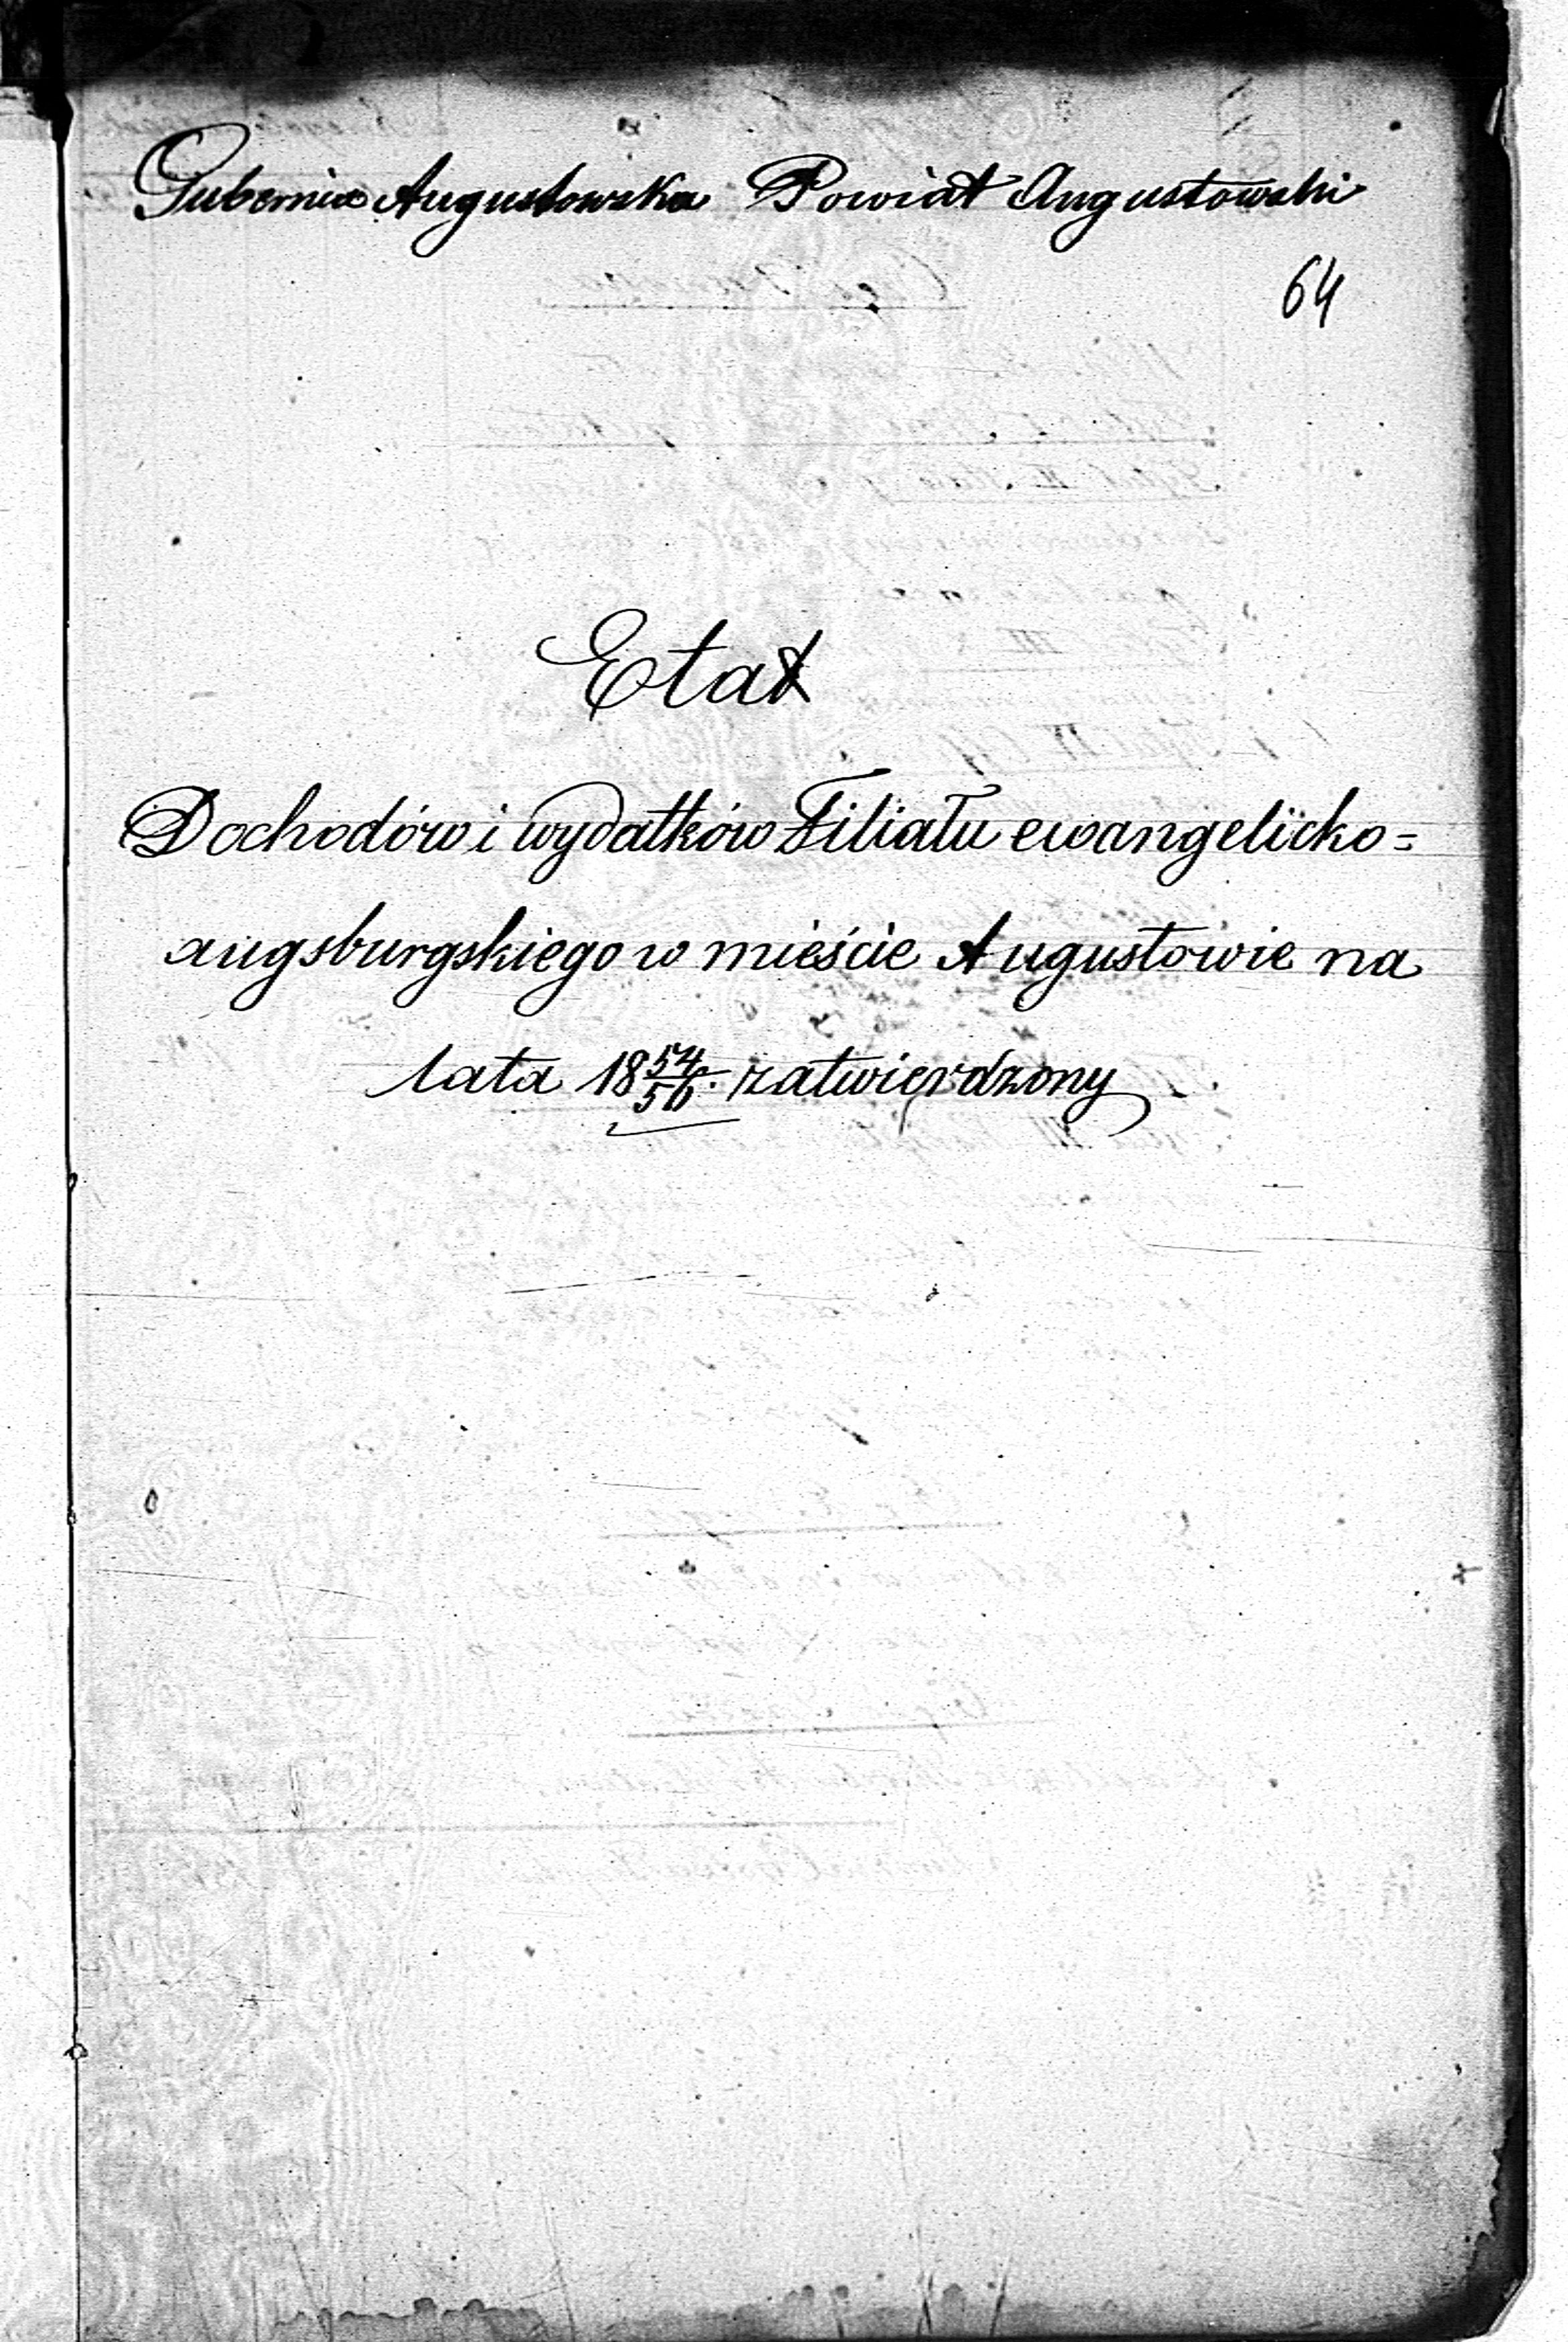 Gubernia Augustowska Powiat Augustowski
64
Etat
Dochodów i wydatków Filiału ewangelicko=
augsburgskiego w mieście Augustowie na
lata 18 54/56. zatwierdzony